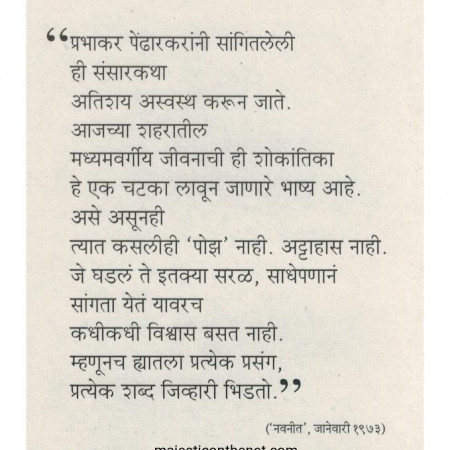 “प्रभाकर पेंढारकरांनी सांगितलेली
ही संसारकथा
अतिशय अस्वस्थ करून जाते.
आजच्या शहरातील
मध्यमवर्गीय जीवनाची ही शोकांतिका
हे एक चटका लावून जाणारे भाष्य आहे.
असे असूनही
त्यात कसलीही ‘पोझ’ नाही. अट्टाहास नाही.
जे घडलं ते इतक्या सरळ, साधेपणानं
सांगता येतं यावरच
कधीकधी विश्वास बसत नाही.
म्हणूनच ह्यातला प्रत्येक प्रसंग,
प्रत्येक शब्द जिव्हारी भिडतो.”
(‘नवनीत’, जानेवारी १९७३)
majesticonthenet.com